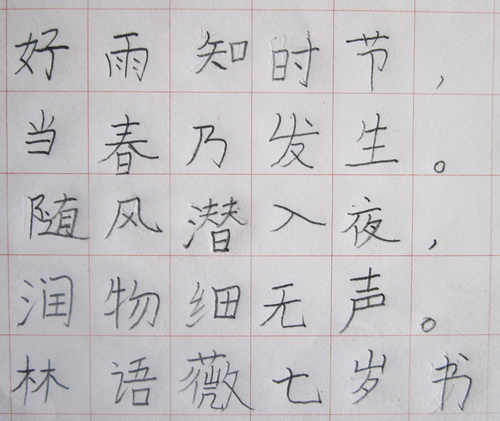 好雨知时节，
当春乃发生。
随风潜入夜，
润物细无声。
林语薇七岁书